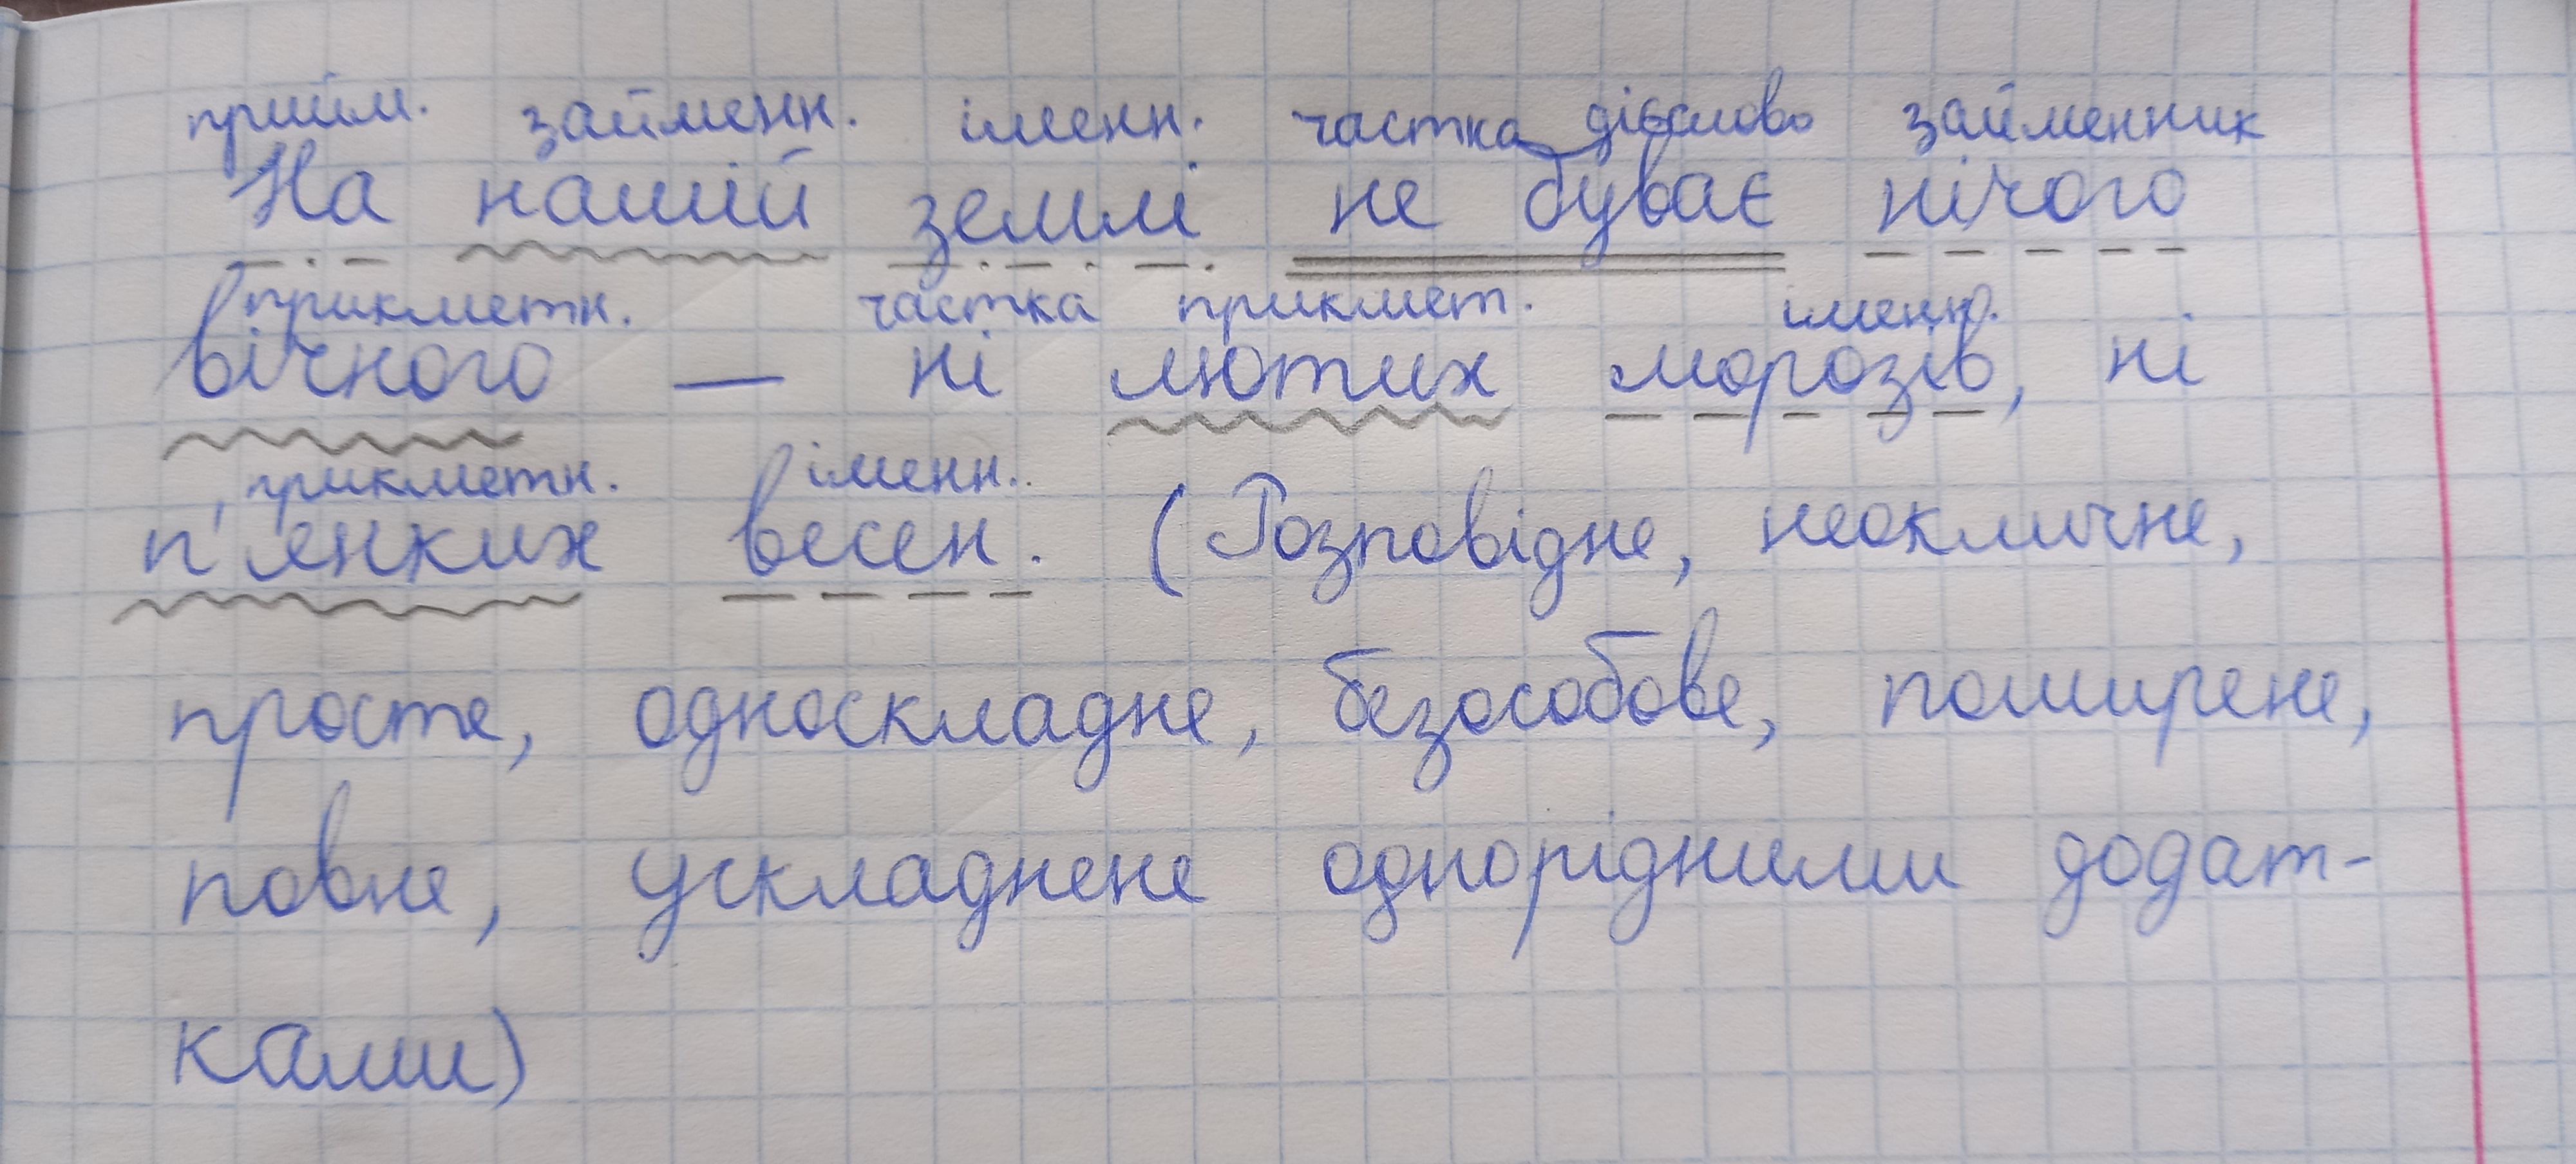 прийм. займенн. іменн. частка дієслово займенник
На нашій землі не буває нічого
прикметн. частка прикмет. іменн.
вічного — ні лютих морозів, ні
прикметн. іменн.
п'янких весен. (Розповідне, неокличне,
просте, односкладне, безособове, поширене,
повне, ускладнене однорідними додат-
ками)